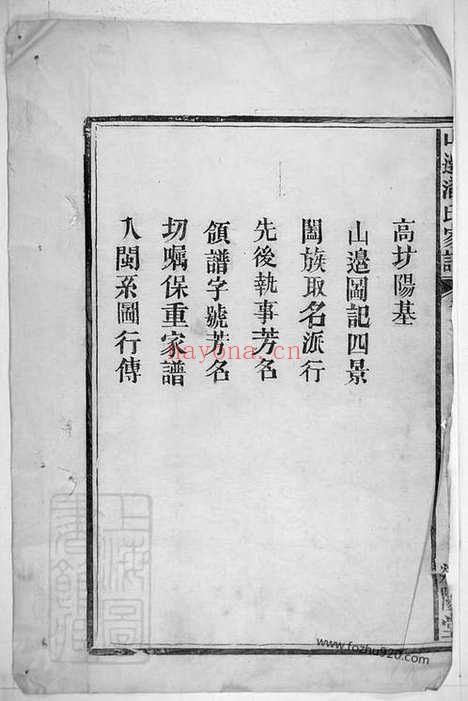 山邉潘氏家譜
高圤陽基
山邉圖記四景
闔族取名派行
先後執事芳名
領譜字號芳名
切嘱保重家譜
入閩系圖行傳
滎陽堂
nayona.cn
上海圖書館藏
www.fozhu920.com